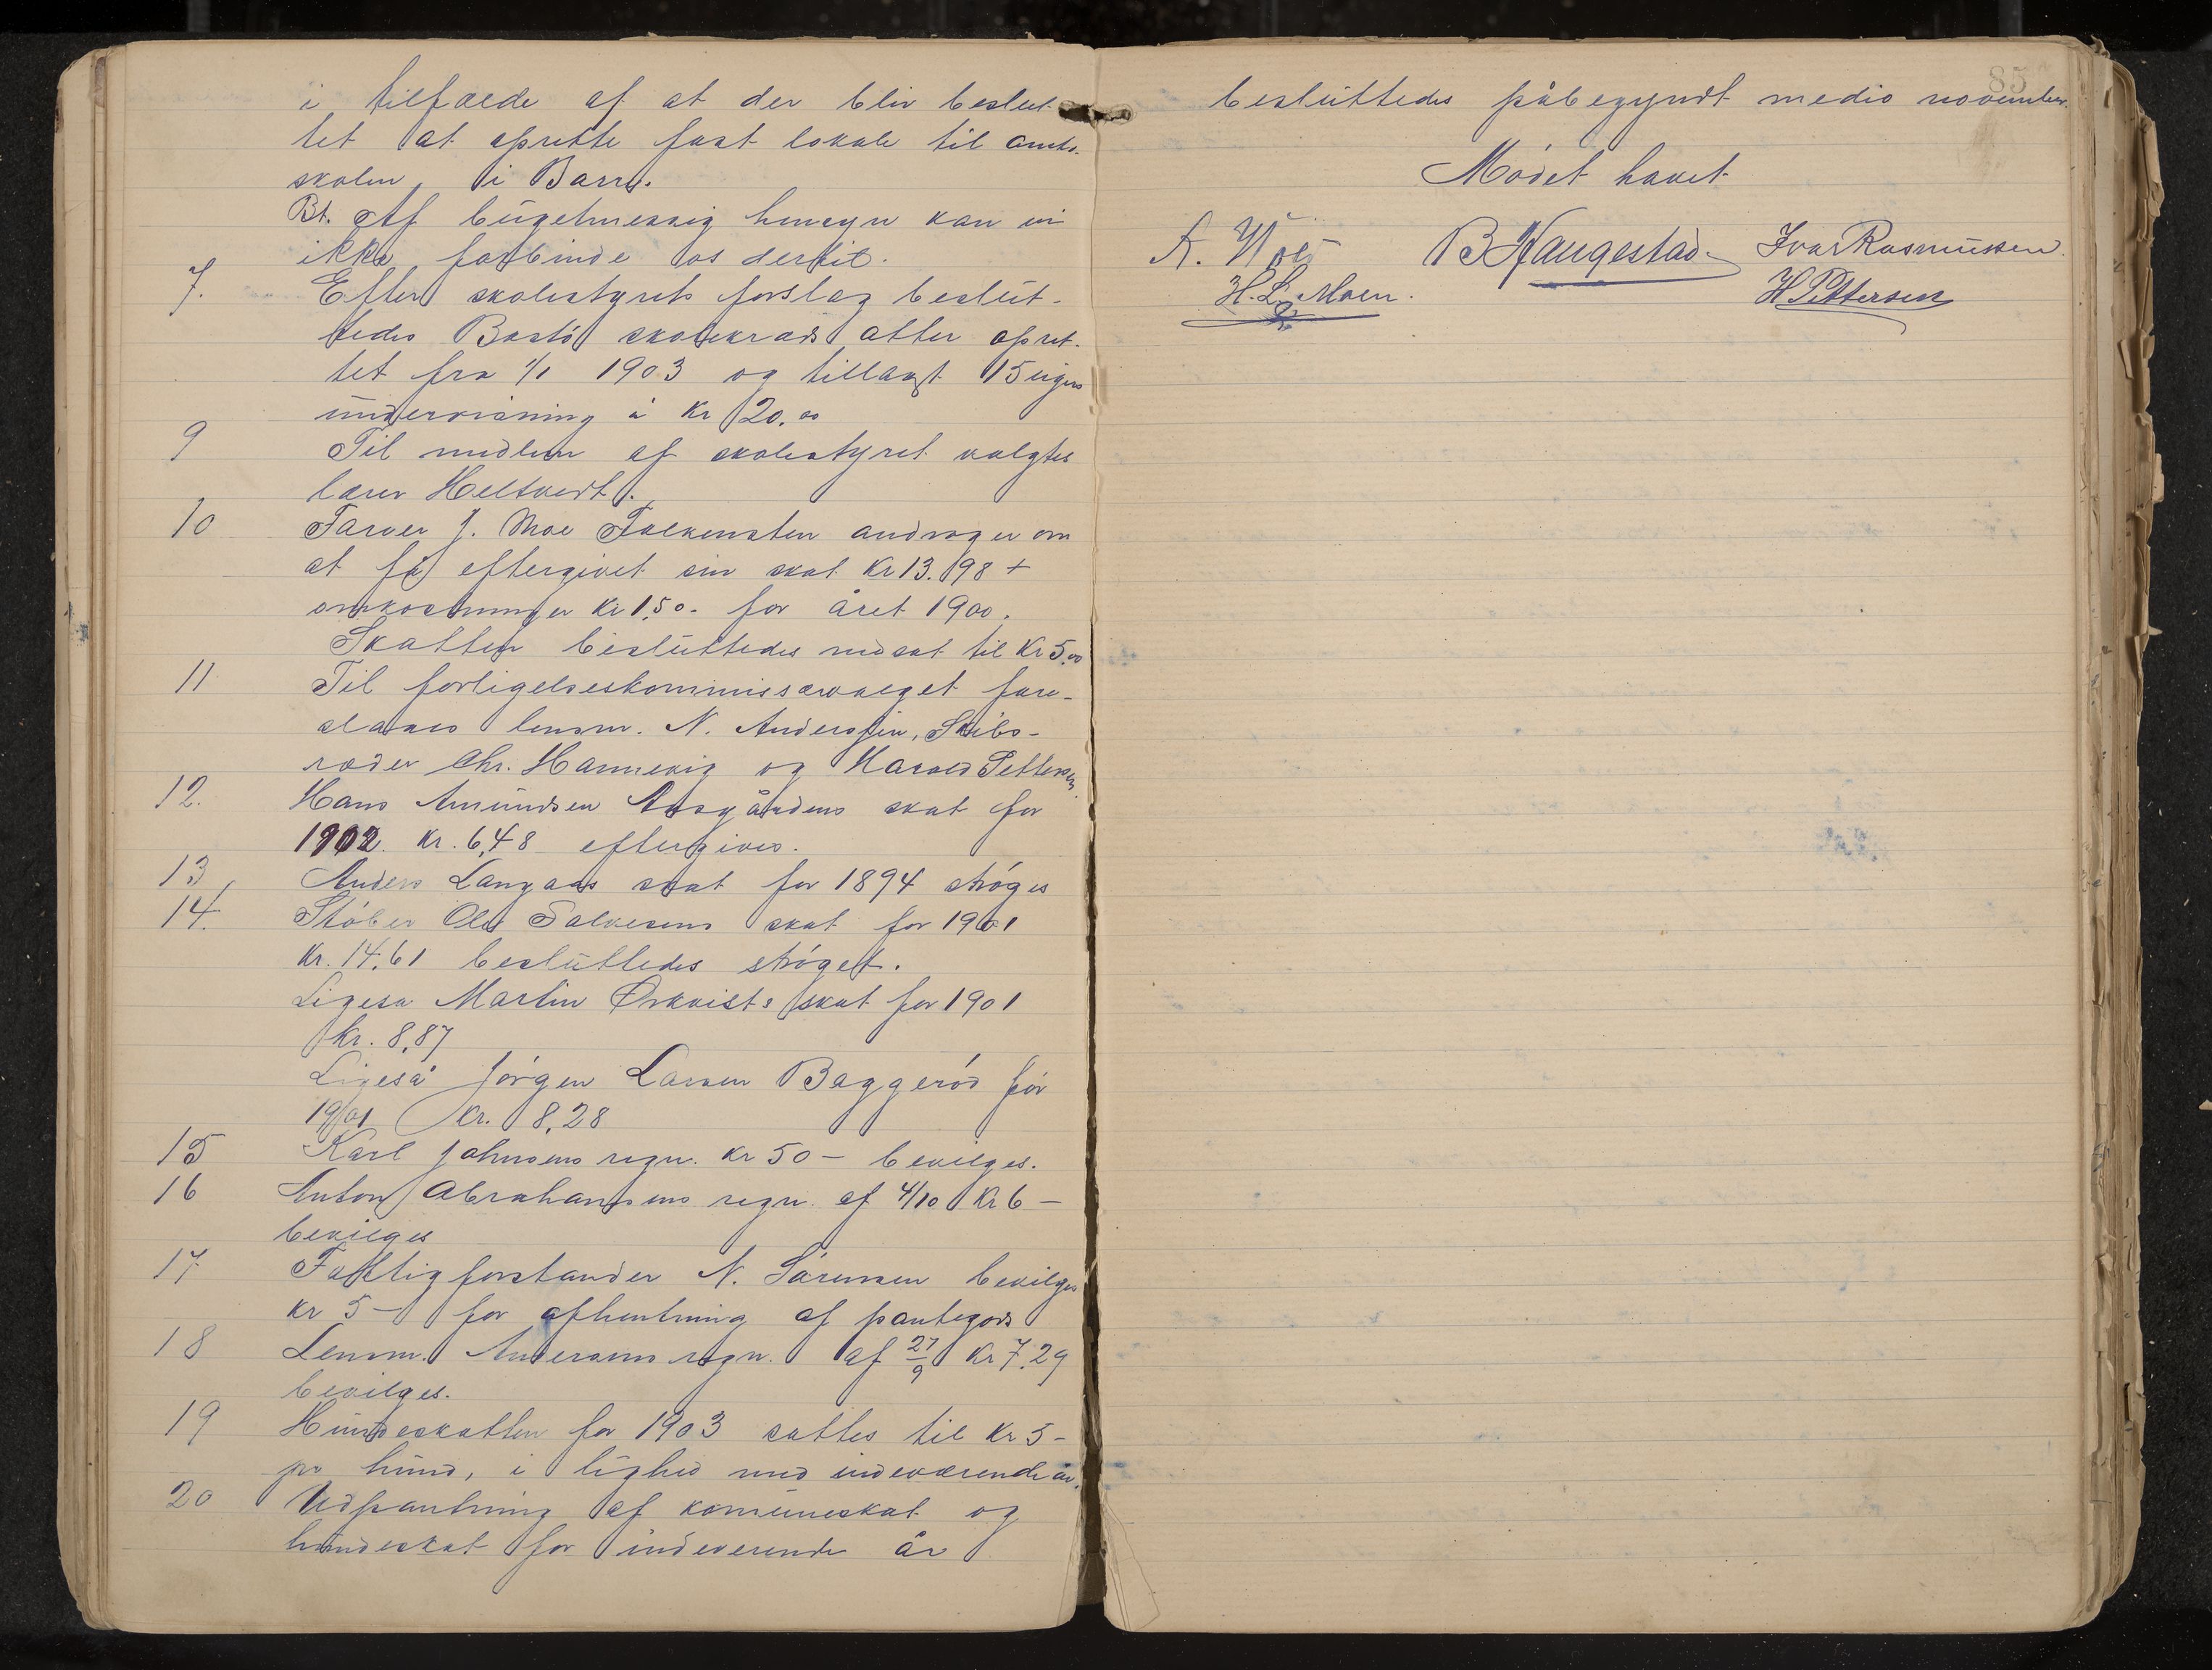 i tilfælde af at der blir beslut-
tet at oprette fast lokale til amts-
skolen i Borre.
Bt. Af bügetmessig hensyn kan vi
ikke forbinde os dertil.
7. Efter skolestyrets forslag beslüt-
tedes Bastö skolekrads atter opret-
tet fra 1/1 1903 og tillagt 15 ugers
ündervisning à Kr 20.00
9 Til medlem af skolestyret valgtes
lærer Heltvedt.
10 Farver J. Moe Falkensten androger om
at få eftergivet sin skat Kr 13.98 +
omkostninger Kr 1,50- for året 1900.
Skatten beslüttedes nedsat til Kr 5.00
11 Til forligelseskommissærvalget fore-
slaaes lensm. N. Anderssen, Skibs-
reder Chr. Hannevig og Harald Pettersen.
12. Hans Amündsen Aasgårdens skat for
1902. Kr. 6,48 eftergives.
13 Anders Langaas skat for 1894 ströges
14. Stöber Ole Salvesens skat for 1901
Kr. 14.61 beslüttedes ströget.
Ligesa Martin Ørkvists skat for 1901
Kr. 8,87
Ligeså Jörgen Larsen Baggeröd för
1901 Kr. 8,28
15 Karl Johnsens regn. Kr 50 – bevilges.
16 Anton Abrahamsens regn. af 4/10 Kr 6 –
bevilges
17 Fattigforstander N. Sörensen bevilges
Kr 5 – for afhentning af pantegods
18 Lensm. Andersens regn. af 27/9 Kr 7.29
bevilges.
19 Hündeskatten for 1903 sattes til Kr 5 -
pr hünd, i lighed med indeværende år.
20 Udpantning af komüneskat og
hündeskat for indeværende år
85
beslüttedes påbegyndt medio november.
Mödet hævet
B Haugestad Ivar Rasmüssen
H. L. Moen. H Pettersen